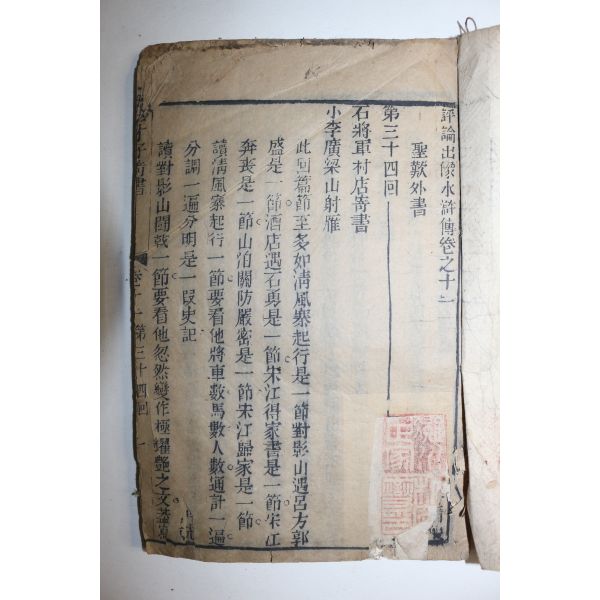 評論出像水滸傳卷之十二
聖歎外書
第三十四回
石將軍村店寄書
小李廣梁山射雁
此回篇節至多如清風寨起行是一節對影山遇呂方郭
盛是一節酒店遇石勇是一節宋江得家書是一節宋江
奔喪是一節山泊關防嚴密是一節宋江歸家是一節
讀清風寨起行一節要看他將車數馬數人數通計一遍
分調一遍分明是一段史記
讀對影山鬪戟一節要看他忽然變作極耀艷之文蓋寫
才子奇書 卷十二 第三十四回 一